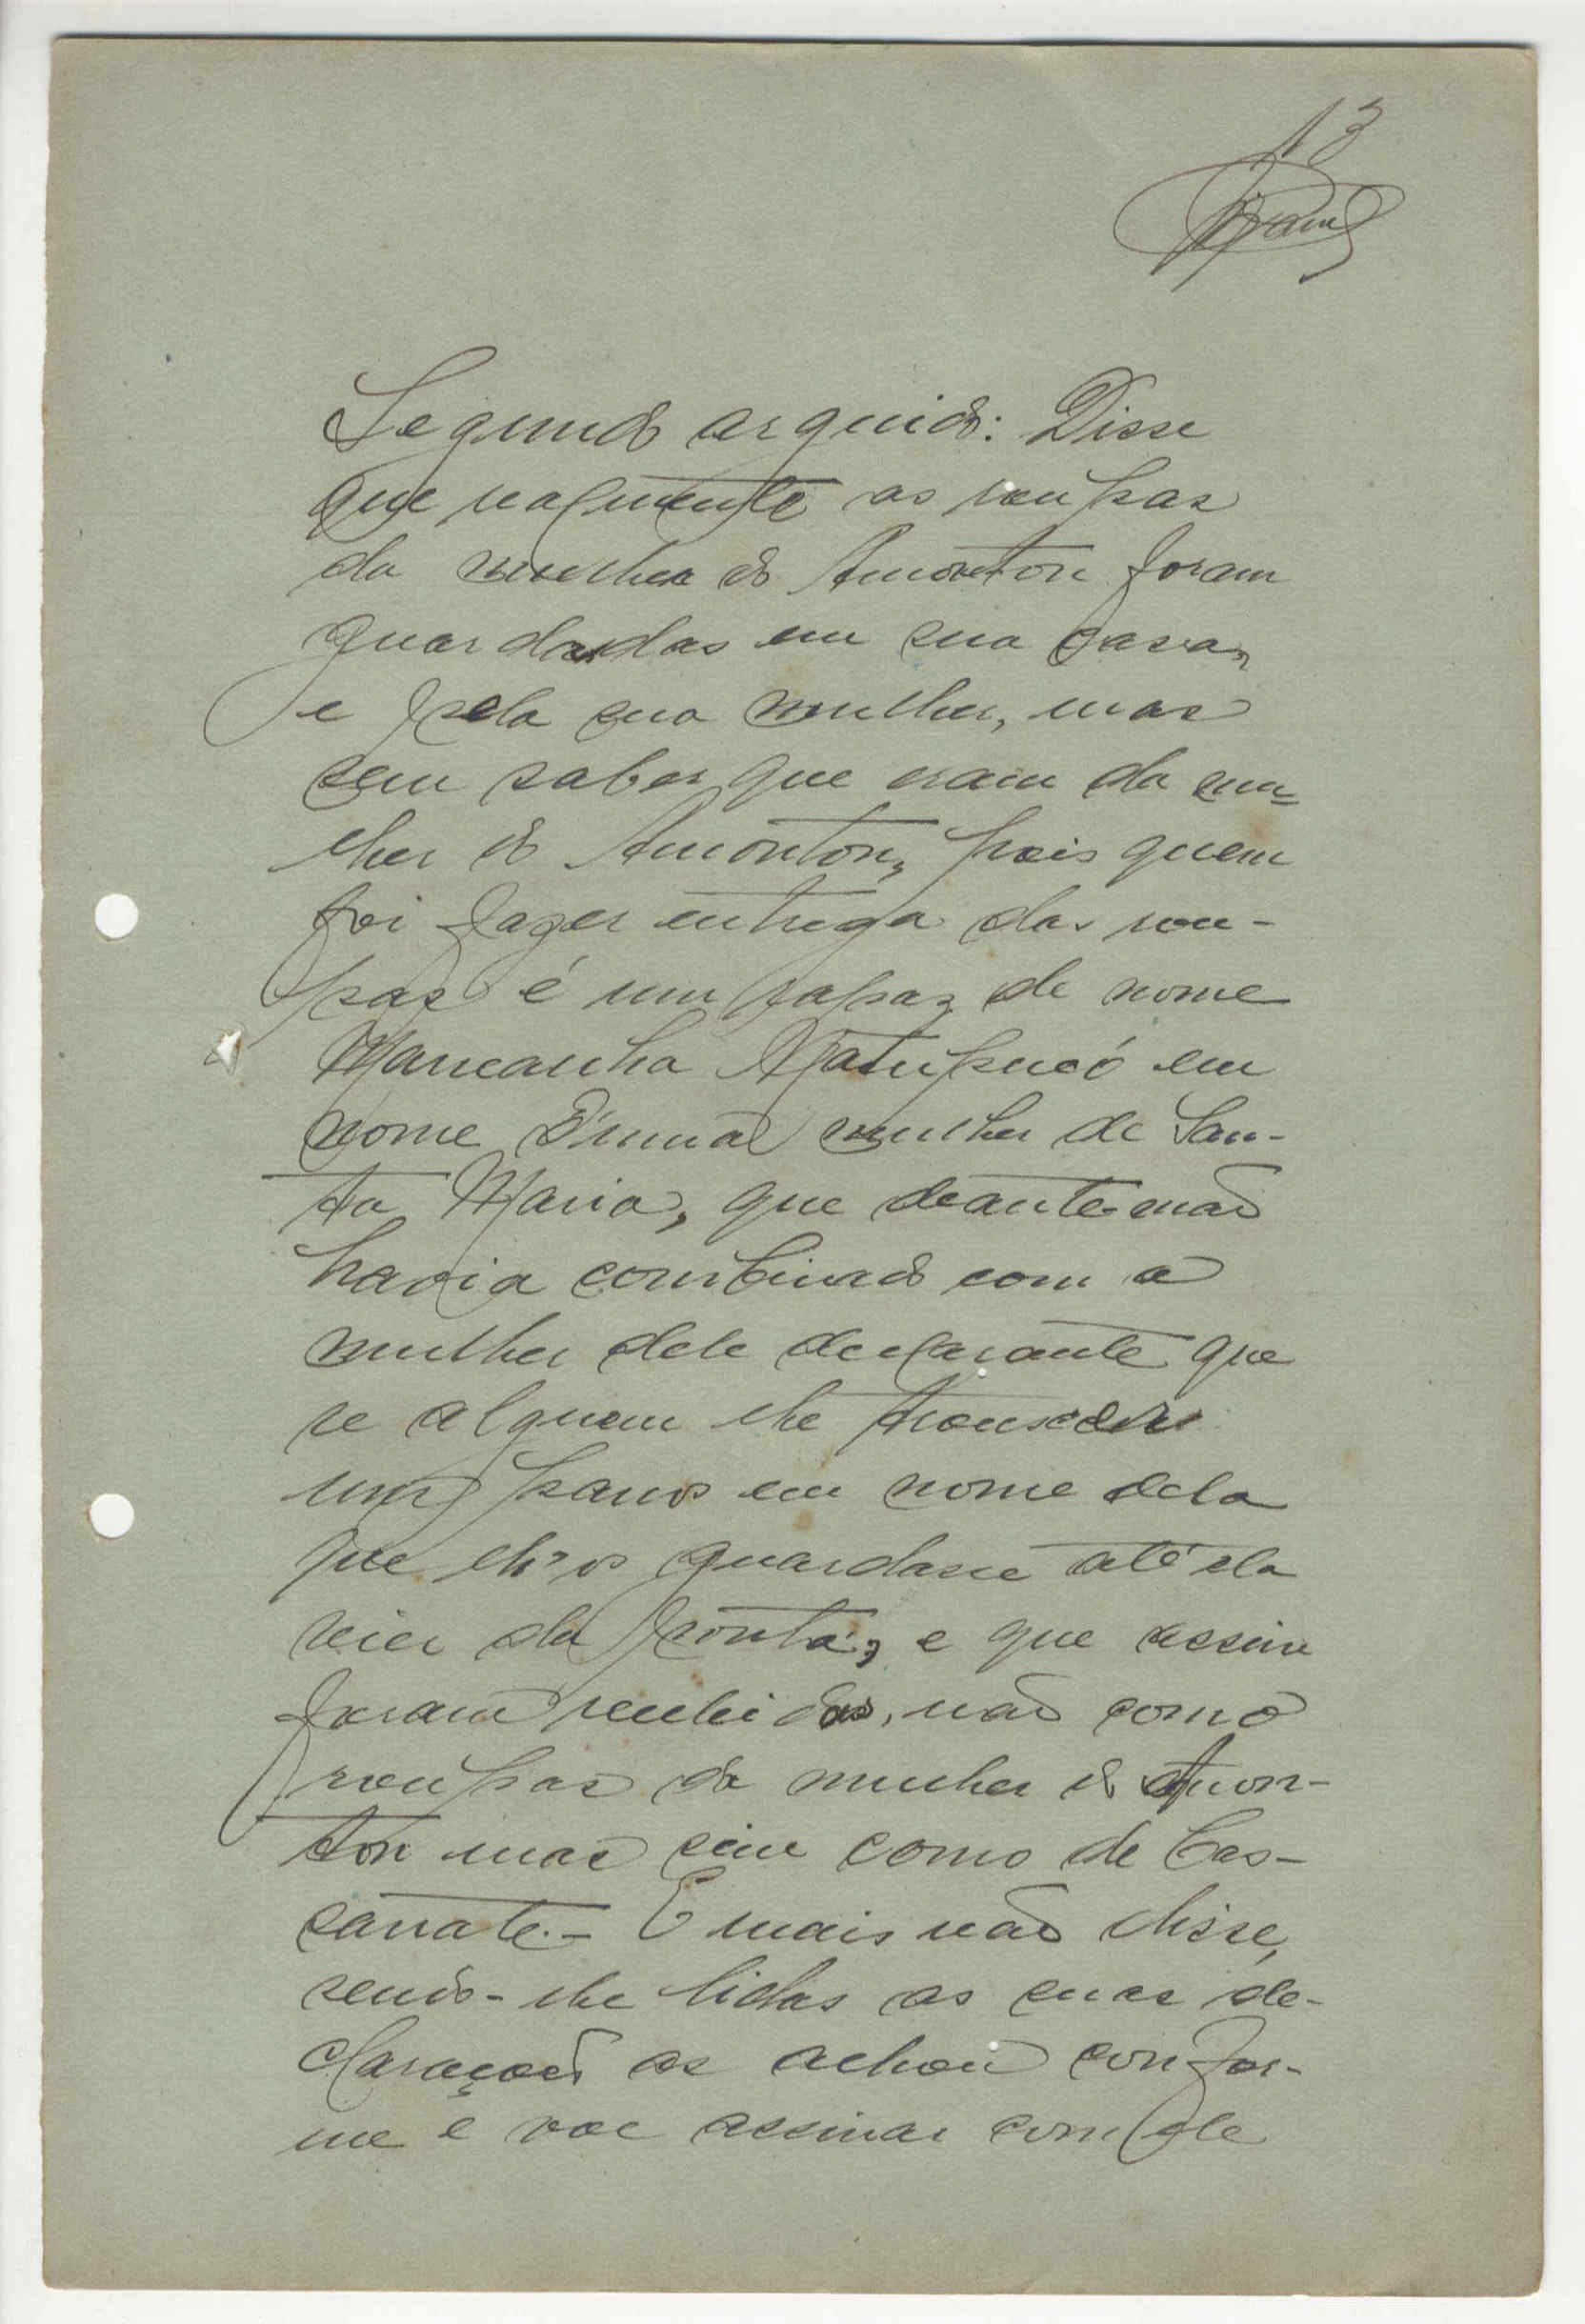 13
Segundo arguido: Disse
que realmente as roupas
da mulher do Amonton foram
guardadas em sua casa,
e pela sua mulher, mas
sem saber que eram da mu-
lher do Amonton, pois quem
foi fazer entrega das rou-
pas é um rapaz de nome
Mancanha em
nome mulher de San-
ta Maria, que deante-mão
havia combinado com a
mulher dele declarante que
se alguem lhe trouxesse
uns panos em nome dela
que lh'os guardasse até ela
vier da ponta, e que assim
foram recebidas, não como
roupas da mulher do Amon-
ton mas sim como de Cas-
sanate.- E mais não disse,
sendo-lhe lidas as suas de-
clarações as achou confor-
me e vae assinar com ele